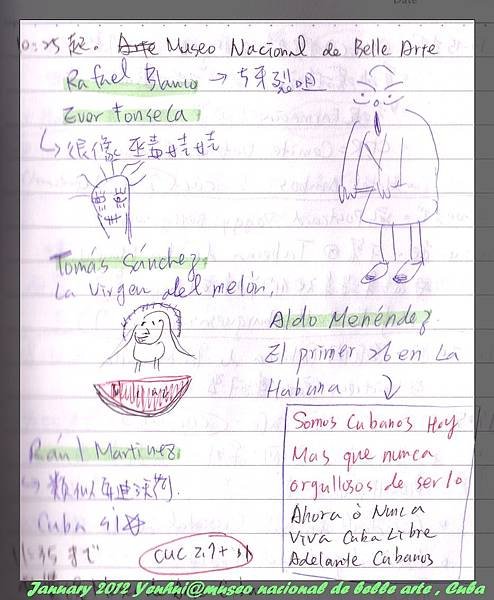 10:25 起. Arte Museo Nacional de Belle Arte
Rafael Blanco → 呲牙裂咀
Ever Fonseca
↳ 很像巫毒娃娃
Tomás Sánchez
La Virgen del melón,
Aldo Menéndez
El primer 26 en La
Habana
Somos Cubanos Hoy
Mas que nunca
orgullosos de serlo
Ahora ò Nunca
Viva Cuba Libre
Adelante Cubanos
Rául Martinez
↳ 類似安迪沃荷.
Cuba si
11:35 まで
CUC
January 2012 Yenhui@museo nacional de belle arte , Cuba